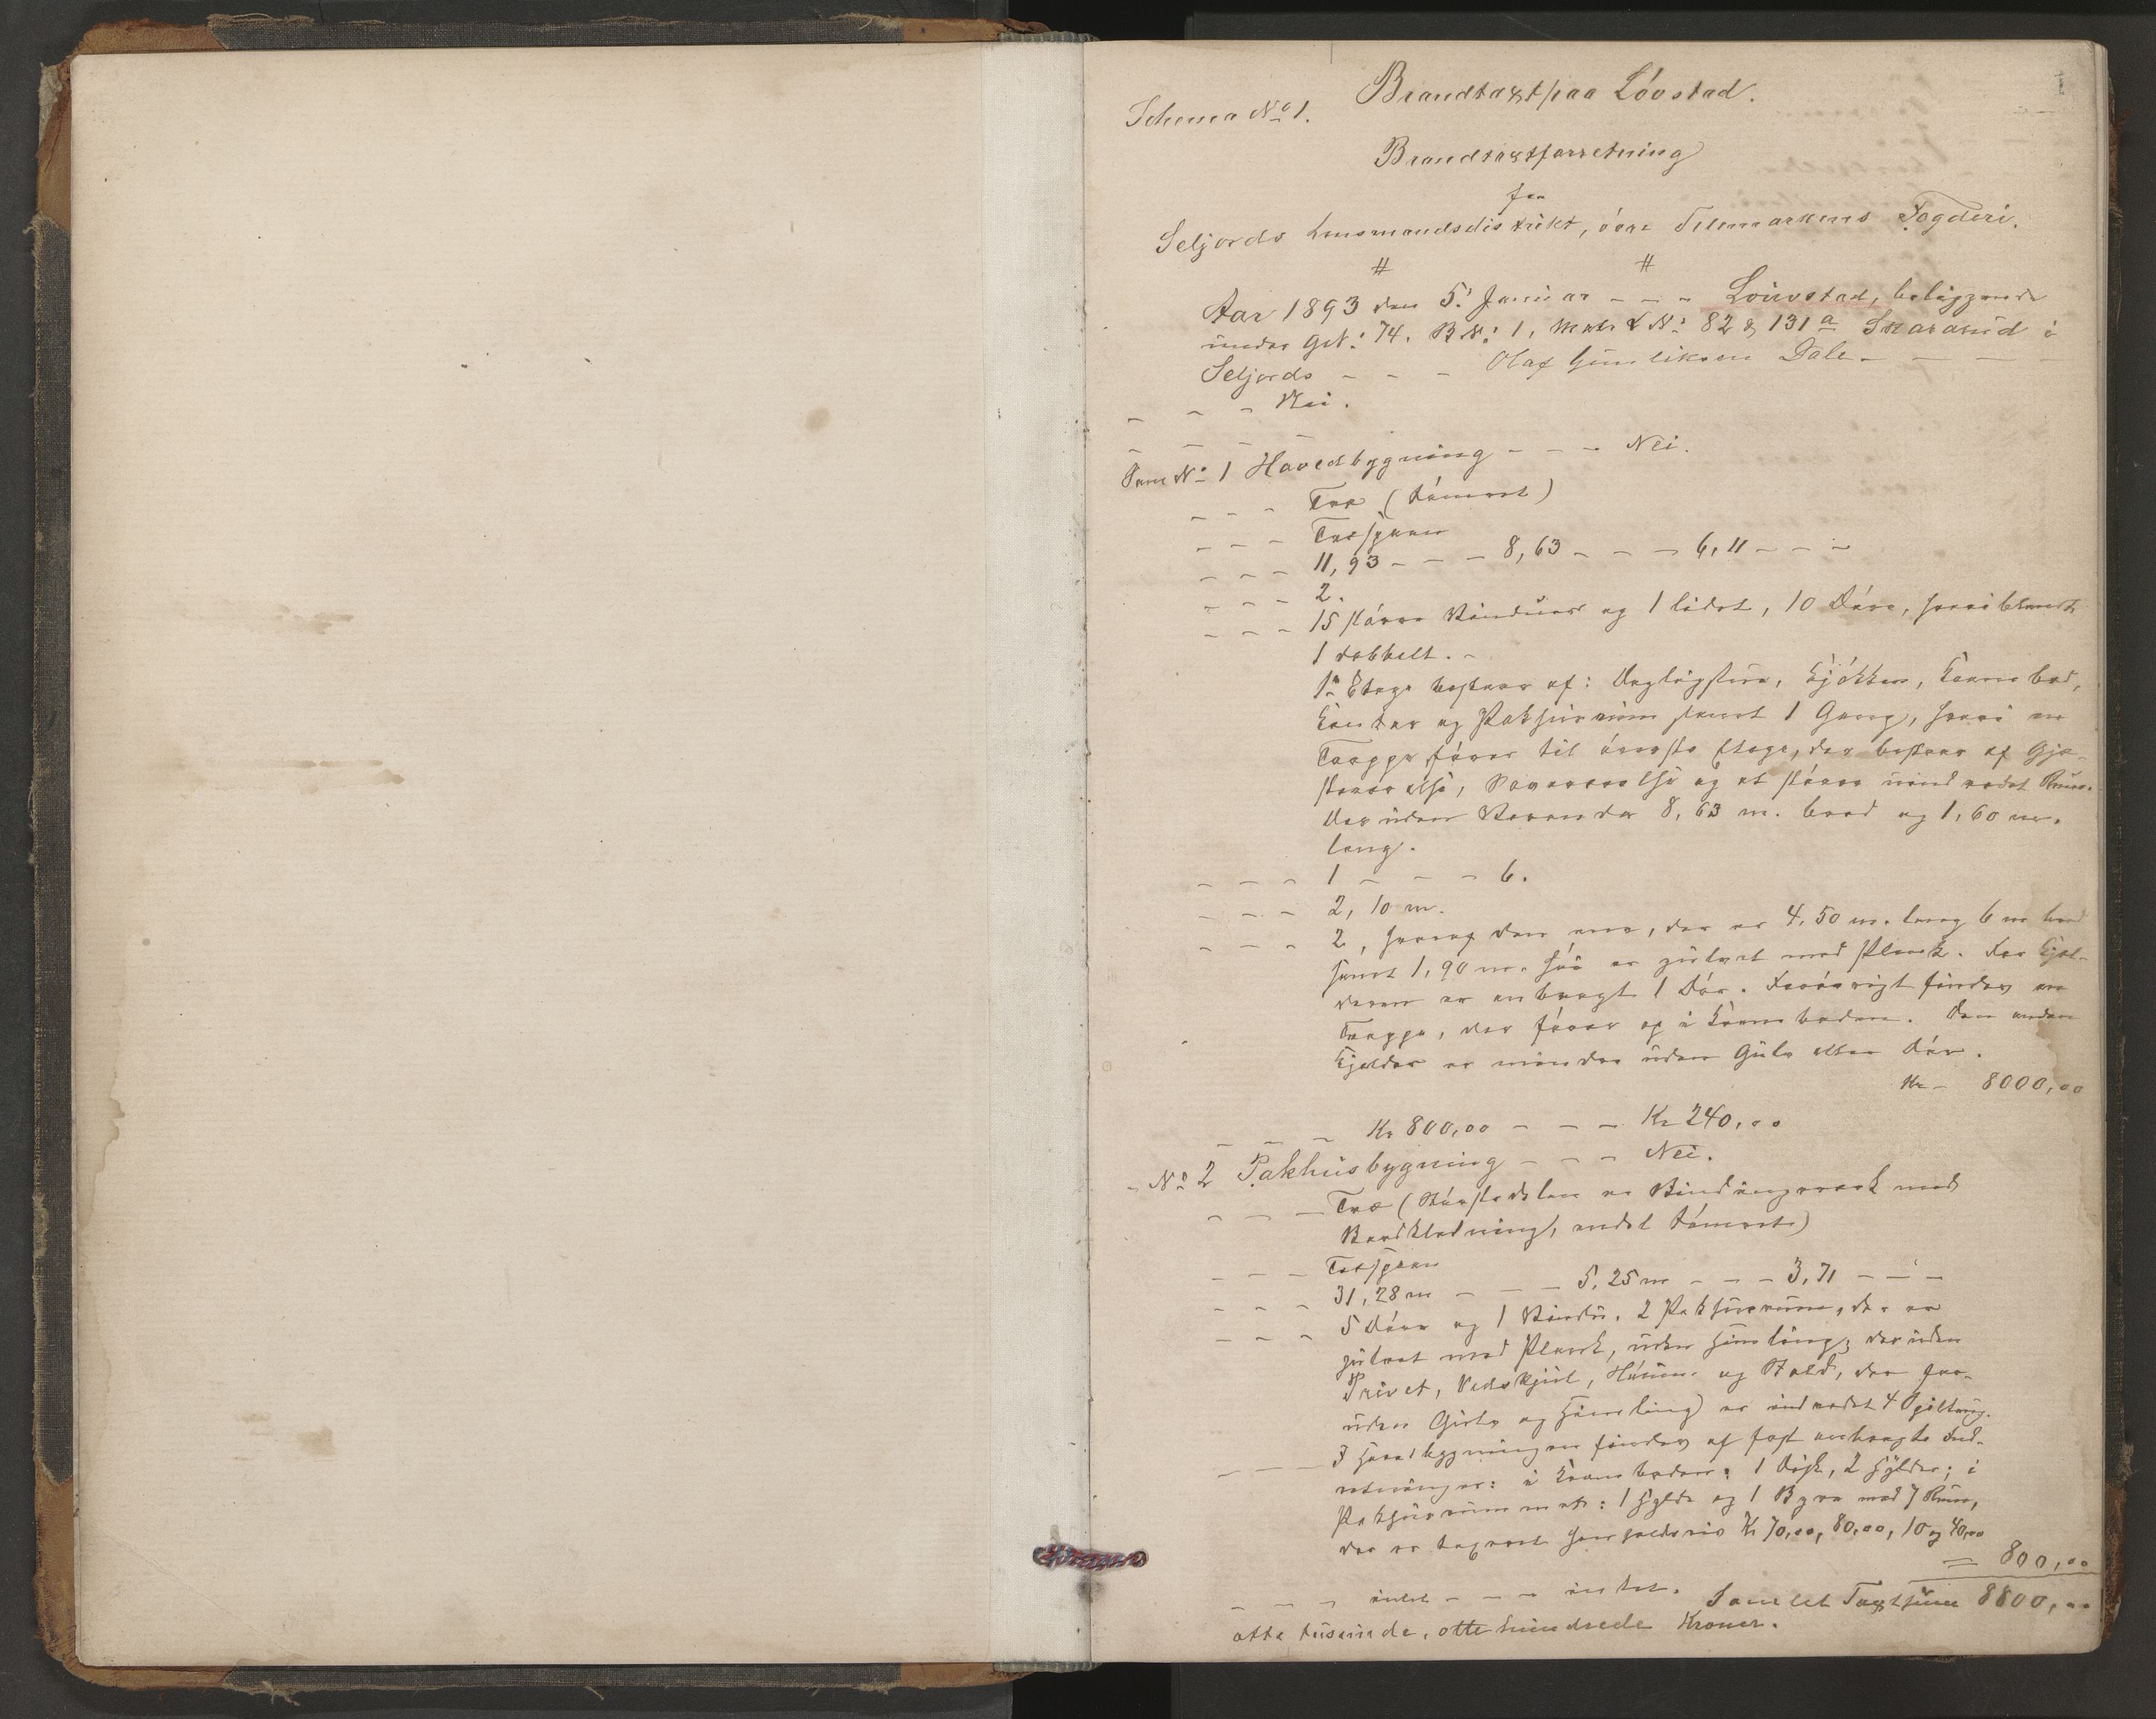 1
Brandtaxt paa Lövstad.
Schema No 1.
Brandtaxtforretning
fra
Seljords Lensmandsdistrikt, övre Telemarkens Fogderi.
# #
Aar 1893 den 5. Januar - - - Löuvstad, beliggende
under GN: 74. BN: 1, Matr L N: 82 & 131 a i
Seljords - - - Olaf Gunliksen Dale - - -
- - - Nei.
- - - -
No 1 Hovedbygning - - - Nei.
- - - Træ (tömret)
- - - Træspaan
- - - 11,93 - - - 8,63 - - - 6,11 - - -
- - - 2.
- - - 15 större Vinduer og 1 lidet, 10 Döre, hvoriblandt
1 dobbelt. -
1ste Etage bestaar af: Dagligstue, Kjökken, Krambod,
Kontor og Pakhusrum samt 1 Gang, hvori en
Trappe förer til överste Etage, der bestaar af Gjæ-
steværelse, Soveværelse og et större uindredet Rum.
Der uden Veranda 8,63 m. bred og 1,60 m.
lang.
- - - 1 - - - 6.
- - - 2,10 m.
- - - 2, hvoraf den ene, der er 4,50 m. lang 6 m bred
samt 1,90 m. höi er gulvet med Plank. For Kjæl-
deren er anbragt 1 Dör. Forövrigt findes en
Trappe, der förer op i Kramboden. Den anden
Kjelder er mindre uden Gulv eller Dör.
Kr - 8000,00
- - - Kr 800,00 - - - Kr 240,00
- No 2 Pakhusbygning - - - Nei.
- - - Træ (Störstedelen er Bindingsverk med
Bordklædning, endel tömret)
- - - Træspaan
- - - 31,28 m - - - 5,25 m - - - 3,71 - - -
- - - 5 Döre og 1 Vindu. 2 Pakhusrum, der er
gulvet med Plank, uden Himling; der uden
Privet, Vedskjul, og Stald, der for-
uden Gulv og Himling er indredet 4
- - - I Hovedbygningen findes af fast anbragte Ind-
retninger: i Kramboden: 1 Disk, 2 Hylder; i
Pakhusrummet: 1 Hylde og 1 med 7 Rum,
der er taxeret henholdsvis Kr 70,00, 80,00, 10 og 40,00
= 800,00
- - - intet - - - intet. Samlet Taxtsum 8800,00
otte tusinde, otte hundrede Kroner.